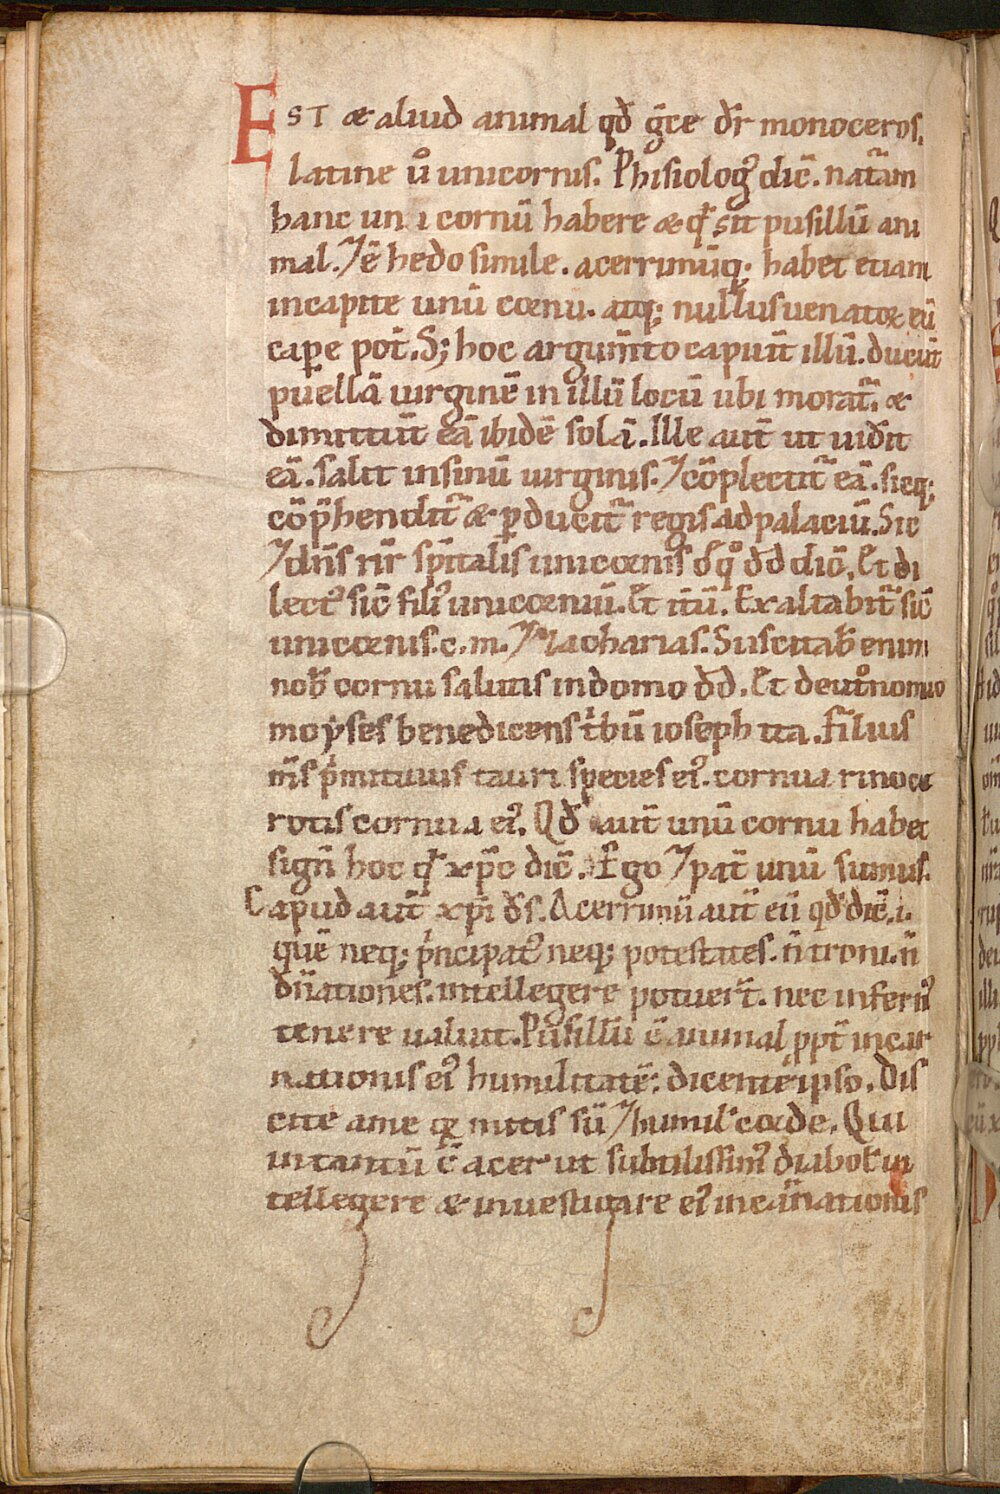 EST æ aliud animal qd̄ gᷓce dr̄ monoceros.
latine ů unicornis. Phisiologꝰ dic̄. nat̄am
hanc un i cornū habere æ qͥ sit pusillū ani
mal. ⁊ ē hedo simile. acerrimūq;. habet etiam
in capite unū cornu. atq; nullus uenator eū
cap̄e pot̄. S; hoc argum̄to capiūt illū. ducūt
puellā uirginē in illū locū ubi morat̄. æ
dimittūt eā ibidē solā. Ille aut̄ ut uid̄it
eā. salit in sinū uirginis. ⁊ cōplectit̄ eā. sicq;
cōp̄hendit̄ æ p̲ducit̄ regis ad palaciū. Sic
⁊ dn̄s nr̄ sp̄italis unicornis ē. d̄ quͦ dd̄ dic̄. Et di
lectꝰ sic̄ filiꝰ unicorniū. Et it̄ū. Exaltabit̄ sic̄
unicornis. c. m. ⁊ zacharias. Suscitab̄ enim
nob̄ cornu salutis in domo dd̄. Et deut̊nomio
moẏses benedicens tͥbū ioseph ita. Filius
m̄s pͥmitiuus tauri species eiꝰ. cornua rinoce
rotis cornua eiꝰ. Qd̄ aut̄ unū cornu habet
sign̄ hoc qͥ xp̄c dic̄. Ego ⁊ pat̄ unū sumus.
Capud aut̄ xp̄i ds̄. Acerrimū aut̄ eū qd̄ dic̄. i.
quē neq; pͥncipatꝰ neq; potestates. n̄ troni. n̄
dn̄ationes. intellegere potuer̄t. nec infernꝰ
tenere ualuit. Pusillū ē animal p̲pt̄ incar
nationis eiꝰ humilitatē: dicente ipso. Dis
cite a me qꝛ mitis sū ⁊ humil̄ corde. Qui
in tantū ē acer ut subtilissimꝰ diabol̄ in
tellegere æ inuestigare eiꝰ incarnationis